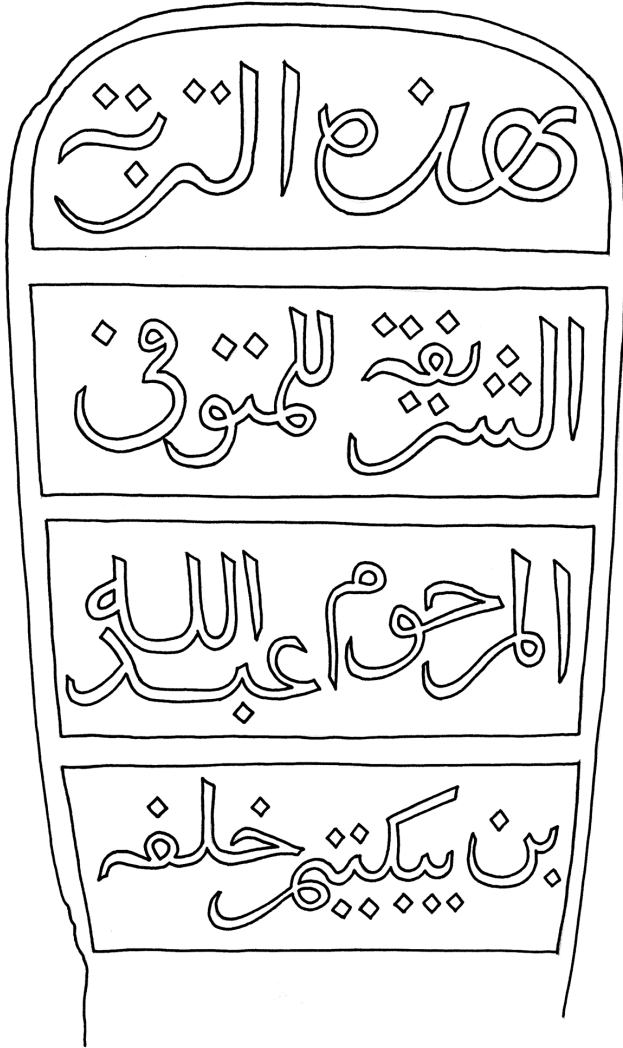 هذه التربة
الشريفة للمتوفى
المرحوم عبد الله
بن بيكتيمر خلفه